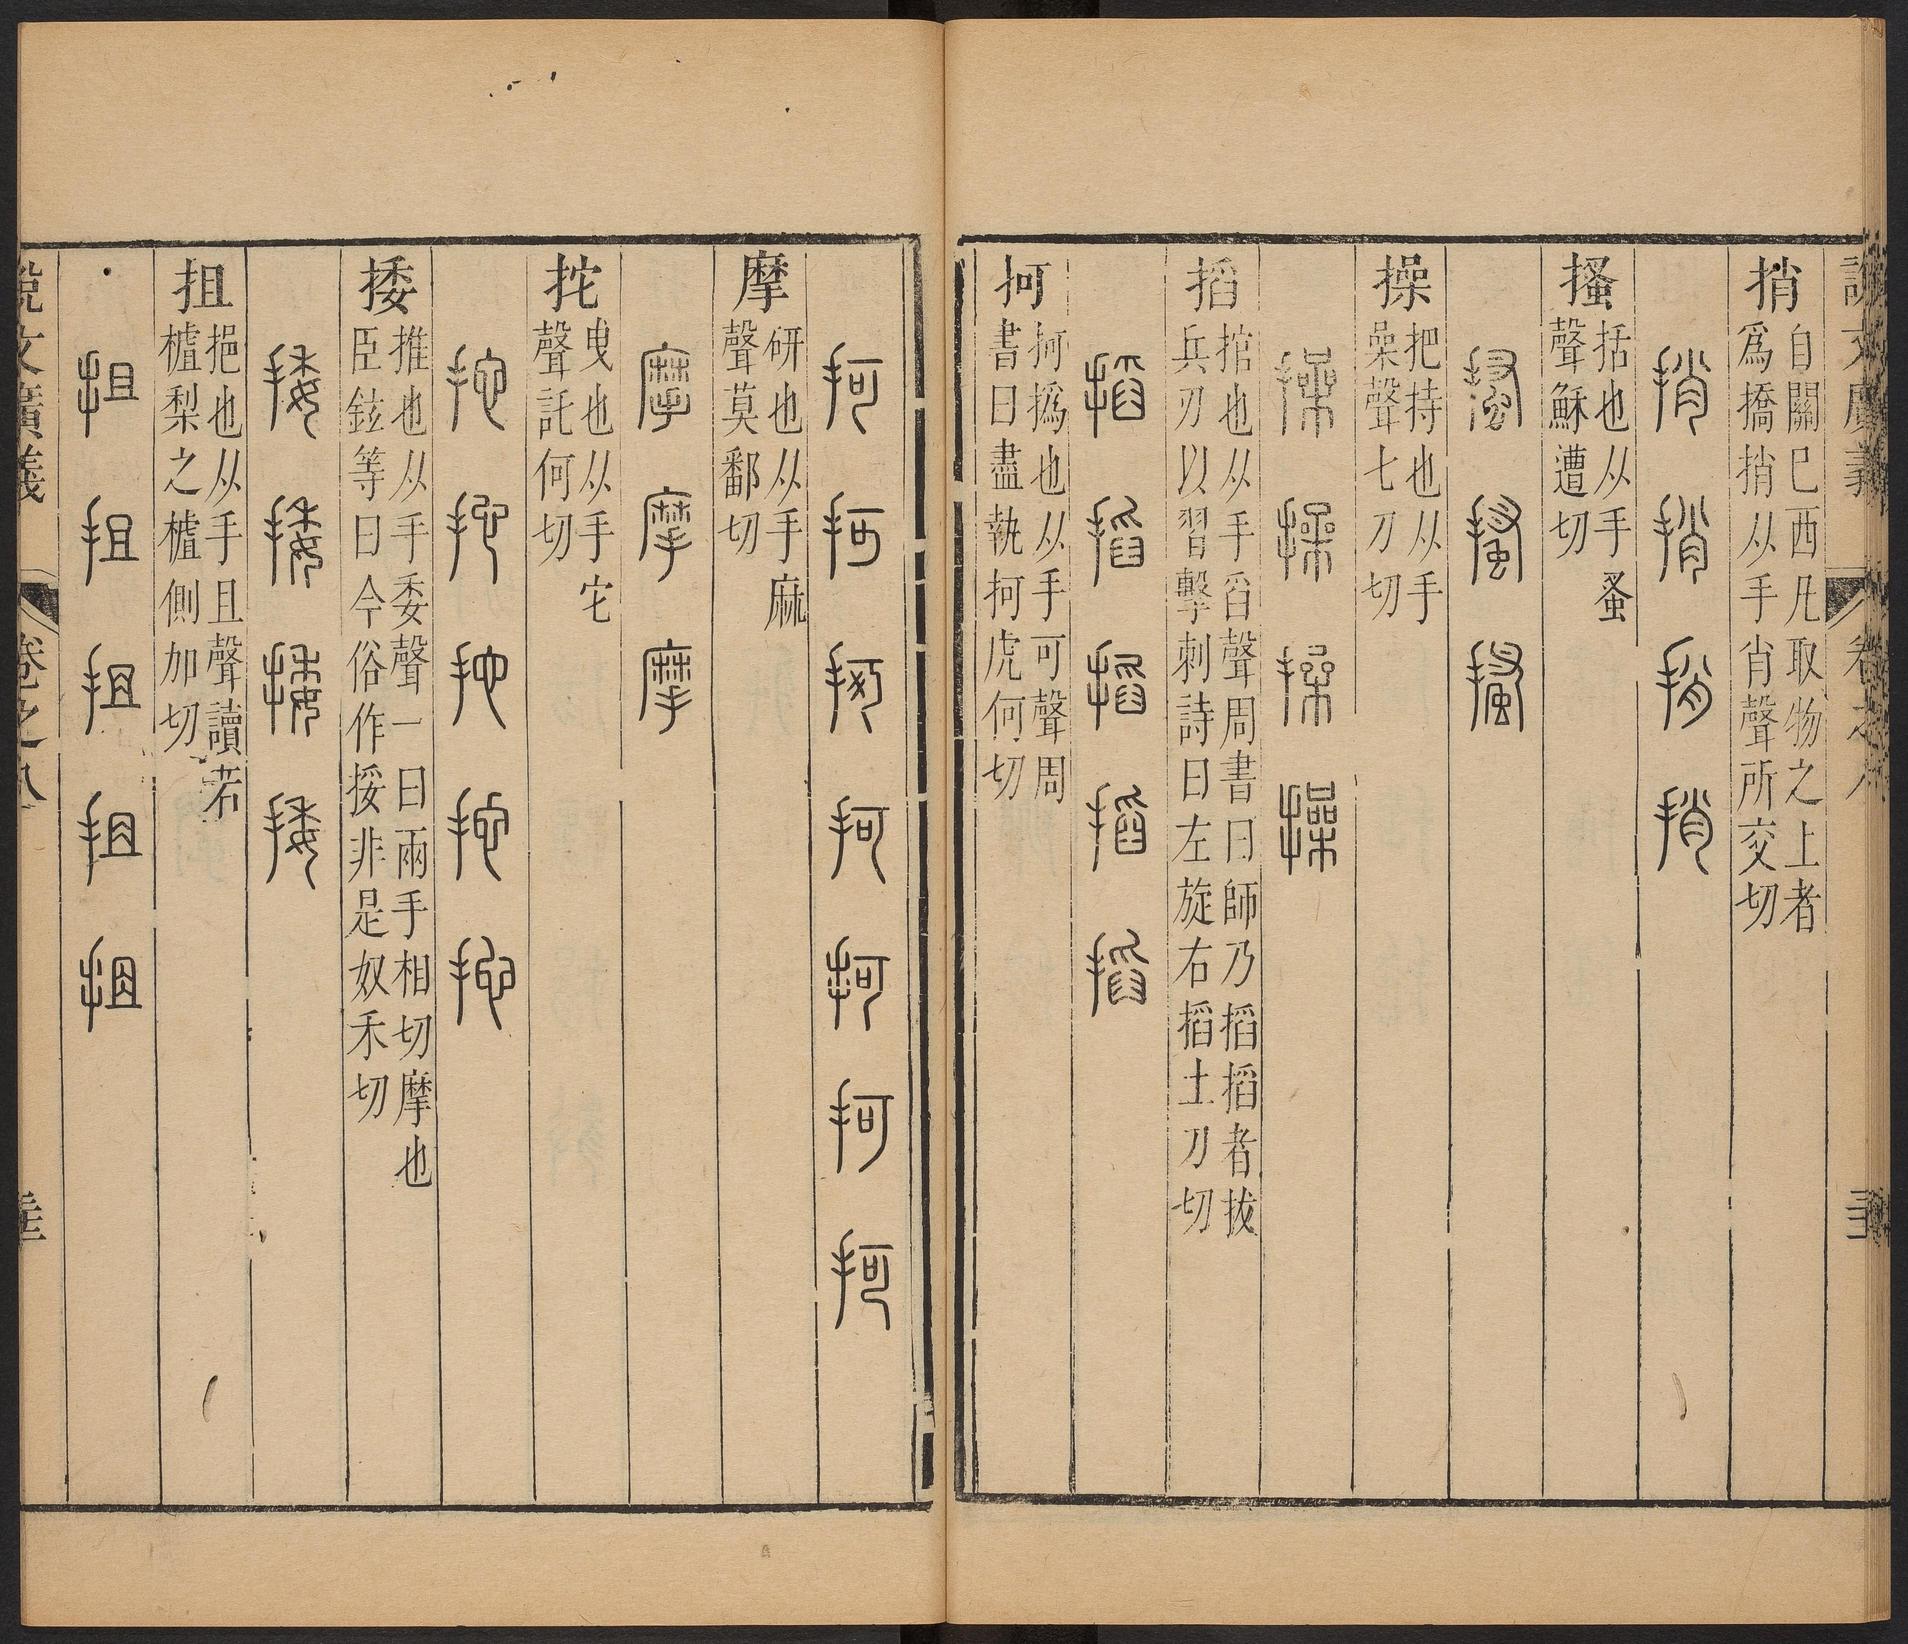 說文廣義 卷之八
捎 自關巳西凡取物之上者
爲撟捎从手肖聲所交切
捎 捎 捎 捎
搔 括也从手蚤
聲穌遭切
搔 搔 搔
操 把持也从手
喿聲七刀切
操 操 操 操
搯 捾也从手舀聲周書曰師乃搯搯者拔
兵刃以習擊刺詩曰左旋右搯土刀切
搯 搯 搯 搯 搯
抲 抲撝也从手可聲周
書曰盡執抲虎何切
抲 抲 抲 抲 抲 抲 抲
摩 研也从手麻
聲莫鄱切
摩 摩 摩
拕 曳也从手它
聲託何切
拕 拕 拕 拕 拕
捼 推也从手委聲一曰兩手相切摩也
臣鉉等曰今俗作挼非是奴禾切
捼 捼 捼 捼
抯 挹也从手且聲讀若
樝梨之樝側加切
抯 抯 抯 抯 抯
說文廣義 卷之八